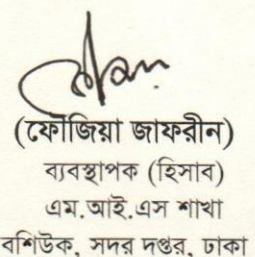 (ফৌজিয়া জাফরীন)
ব্যবস্থাপক (হিসাব)
এম.আই.এস শাখা
বশিউক, সদর দপ্তর, ঢাকা